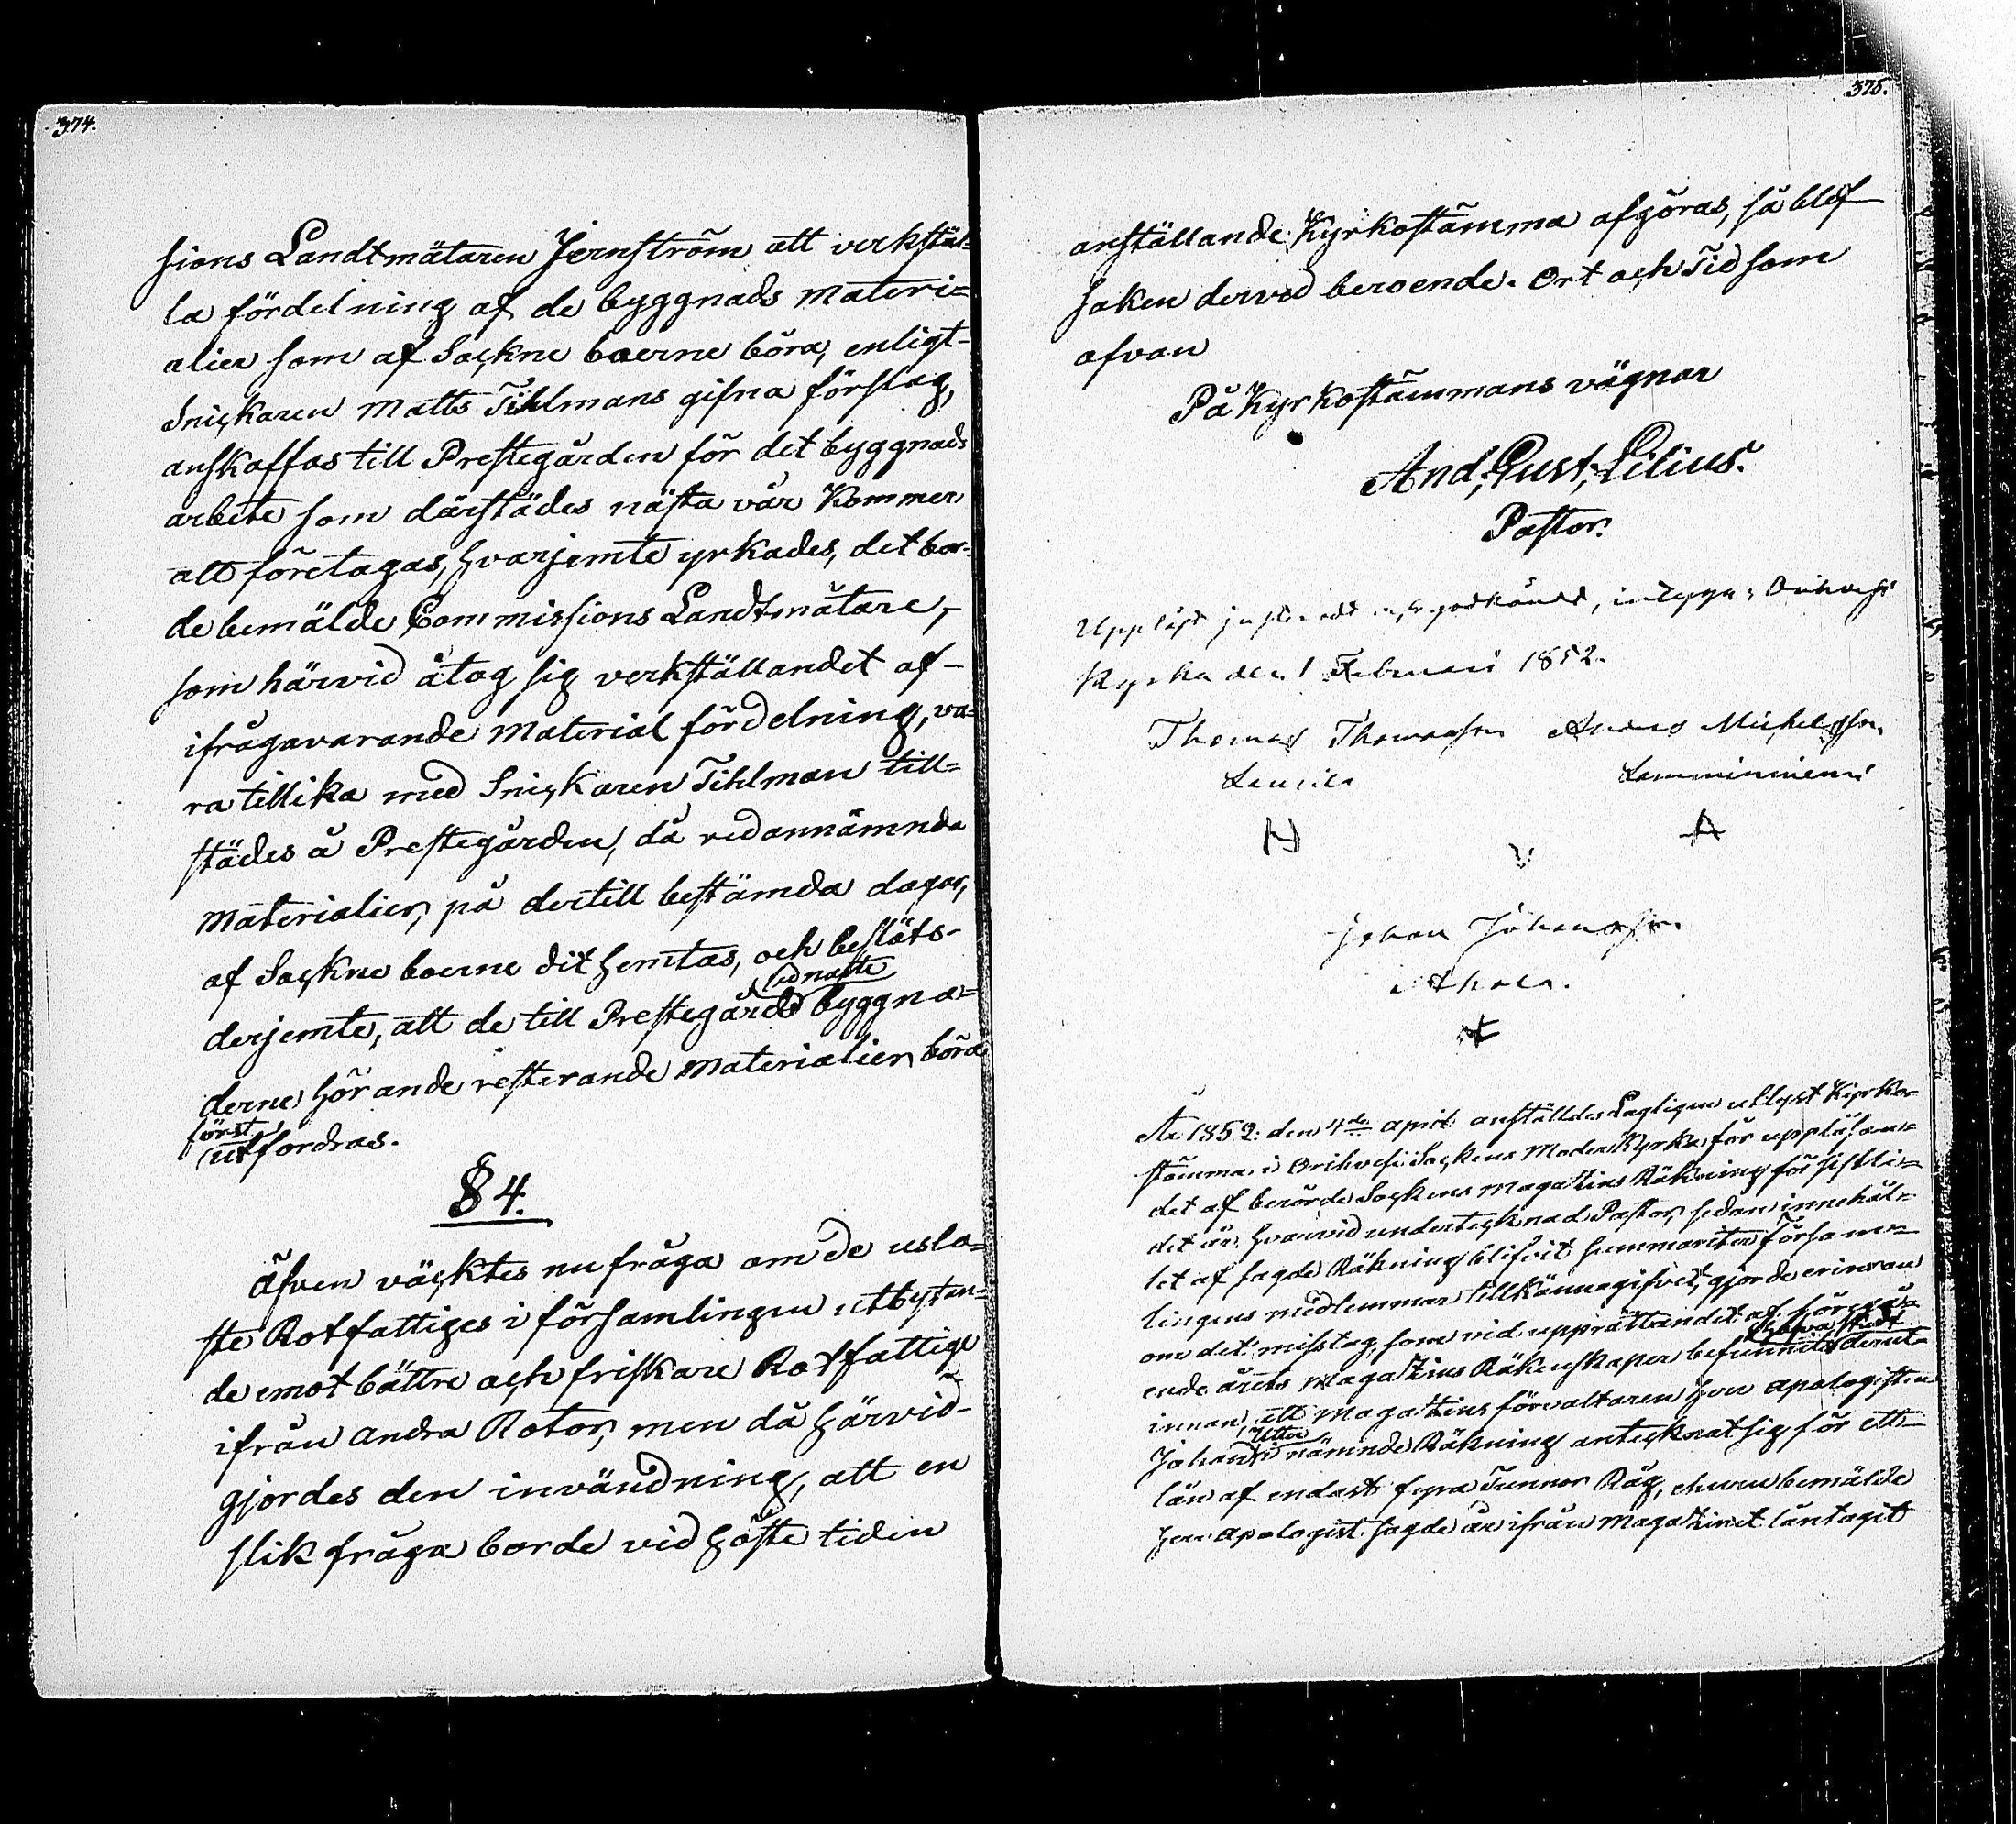 374.
sions Landtmätaren Jernström att verkstäl-
la fördelning af de byggnads materi=
alier som af Sockne boerne böra, enligt
Snickaren Matts Tihlmans gifna förslag,
anskaffas till Prestegården för det byggnads
arbete som därstädes nästa vår Kommer
att företagas, hvarjemte yrkades, det bor-
de bemälde Commissions Landtmätare,
som härvid åtog sig verkställandet af
ifrågavarande Material fördelning, va=
ra tillika med Snickaren Tihlman till=
städes å Prestegården, då redannämnda
Materialier, på dertill bestämda dagar,
af Sockne boerne dit hemtas, och beslöts
sednaste
derjemte, att de till Prestegårds byggna=
derne hörande resterande Materialier böra
först
utfordras.
§ 4.
Äfven väcktes nu fråga om de usla=
ste Rotfattiges i församlingen utbytan=
de emot bättre och friskare Rotfattige
ifrån andra Rotor, men då härvid
gjordes den invändning, att en
slik fråga borde vid höste tiden
375.
anställande Kyrkostämma afgöras, så blef
saken dervid beroende. Ort och Tid som
ofvan
På Kyrkostämmans vägnar
And; Gust; Lilius.
Pastor.
Uppläst justeradt och godkändt, intyga; Orihvesi
Kyrka den 1 Februari 1852.
Thomas Thomasson Anders Michelsson
Lausila Lamminniemi
Johan Johansson
Ahola.
År 1852 den 4de april anställdes Lagligen utlyst Kyrko
stämma i Orihvesi Sockens Moder Kyrka för uppläsan=
det af berörde Sockens Magatins Räkning för sistli=
det år, hvarvid undertecknad Pastor, sedan innehål=
let af sagde Räkning blifvit summariter Försam=
lingens medlemmar tillkännagifvet, gjorde erinran
om det misstag, som vid upprättandet af föregå=
ende årets Magatins Räkenskaper befunnits derut
innan, att Magatins förvaltaren Herr Apologisten
Utter
Johan i nämnde Räkning antecknat sig för ett
lån af endast fyra Tunnor Råg, ehuru bemälde
Herr Apologist sagde år ifrån Magatinet låntagit